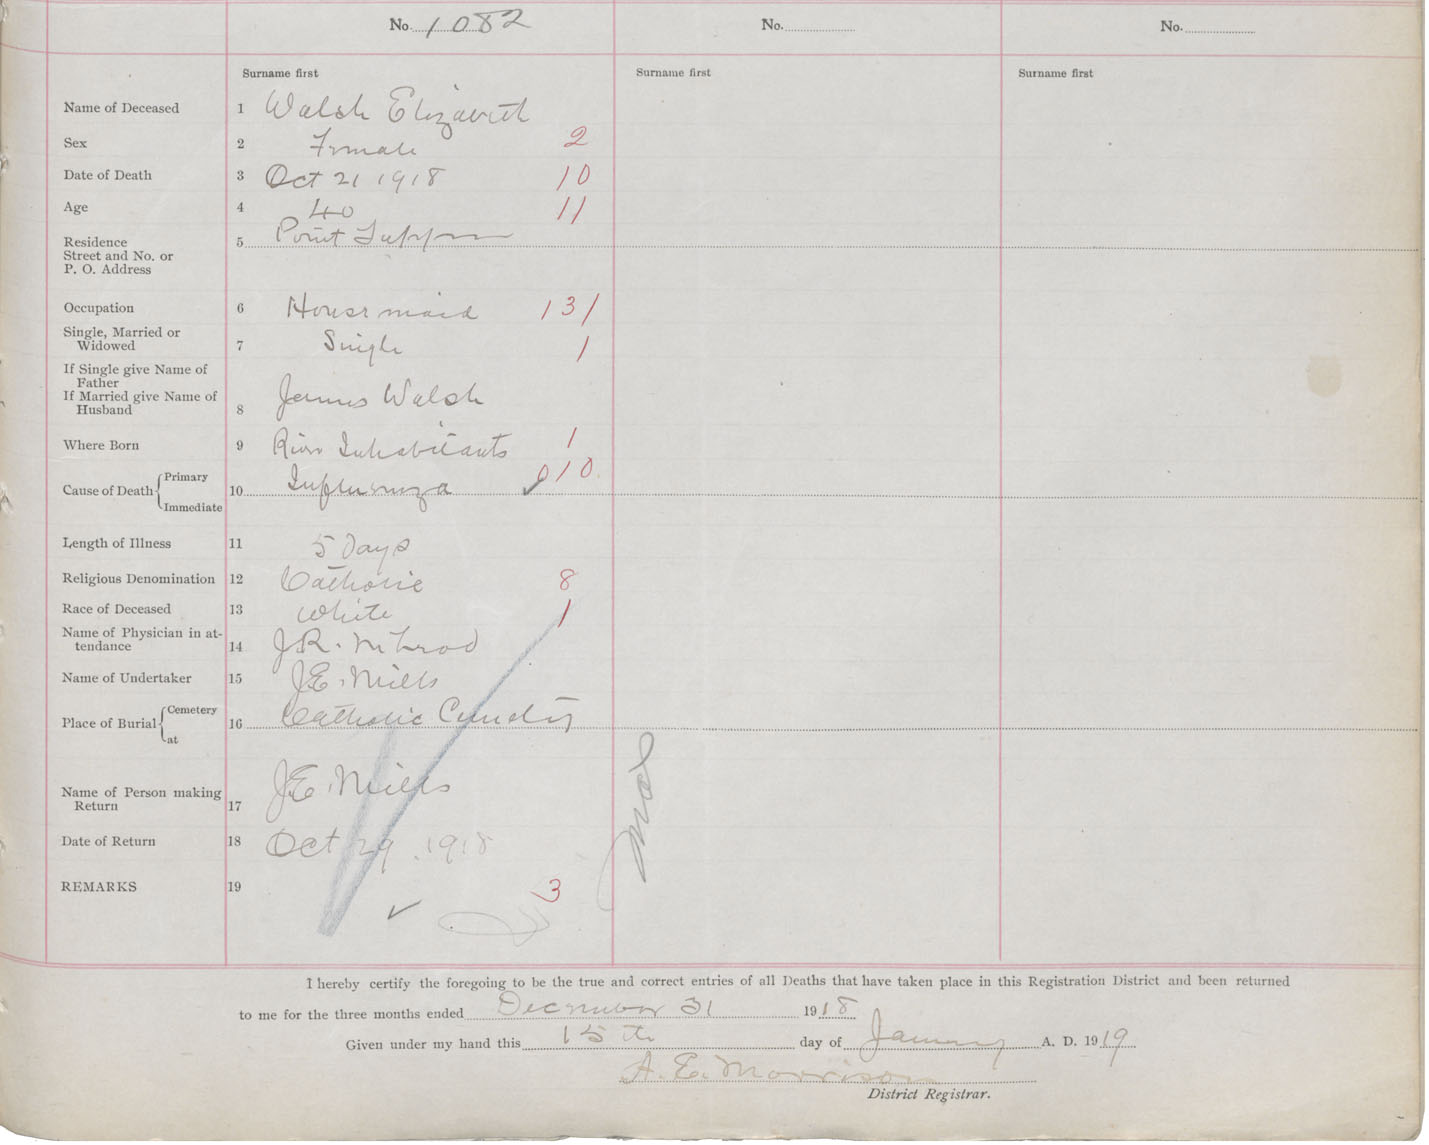 No. 1082 No. No.
Surname first Surname first Surname first
Name of Deceased 1 Walsh Elizabeth
Sex 2 Female 2
Date of Death 3 Oct 21 1918 10
Age 4 40 11
Residence 5 Point Tupper
Street and No. or
P. O. Address
Occupation 6 House maid 131
Single, Married or
Widowed 7 Single 1
If Single give Name of
Father
If Married give Name of
Husband 8 James Walsh
Where Born 9 River Inhabitants 1
Cause of Death Primary 10 Influenza 010
Immediate
Length of Illness 11 5 Days
Religious Denomination 12 Catholic 8
Race of Deceased 13 White 1
Name of Physician in at-
tendance 14 J.R.
Name of Undertaker 15 J.E. Mills
Place of Burial Cemetery 16 Catholic Cemetery
at
Name of Person making
Return 17 J.E. Mills
Date of Return 18 Oct 29, 1918
REMARKS 19 3
I hereby certify the foregoing to be the true and correct entries of all Deaths that have taken place in this Registration District and been returned
to me for the three months ended December 31 1918
Given under my hand this 15th day of January A. D. 1919
A. E. Morrison
District Registrar.